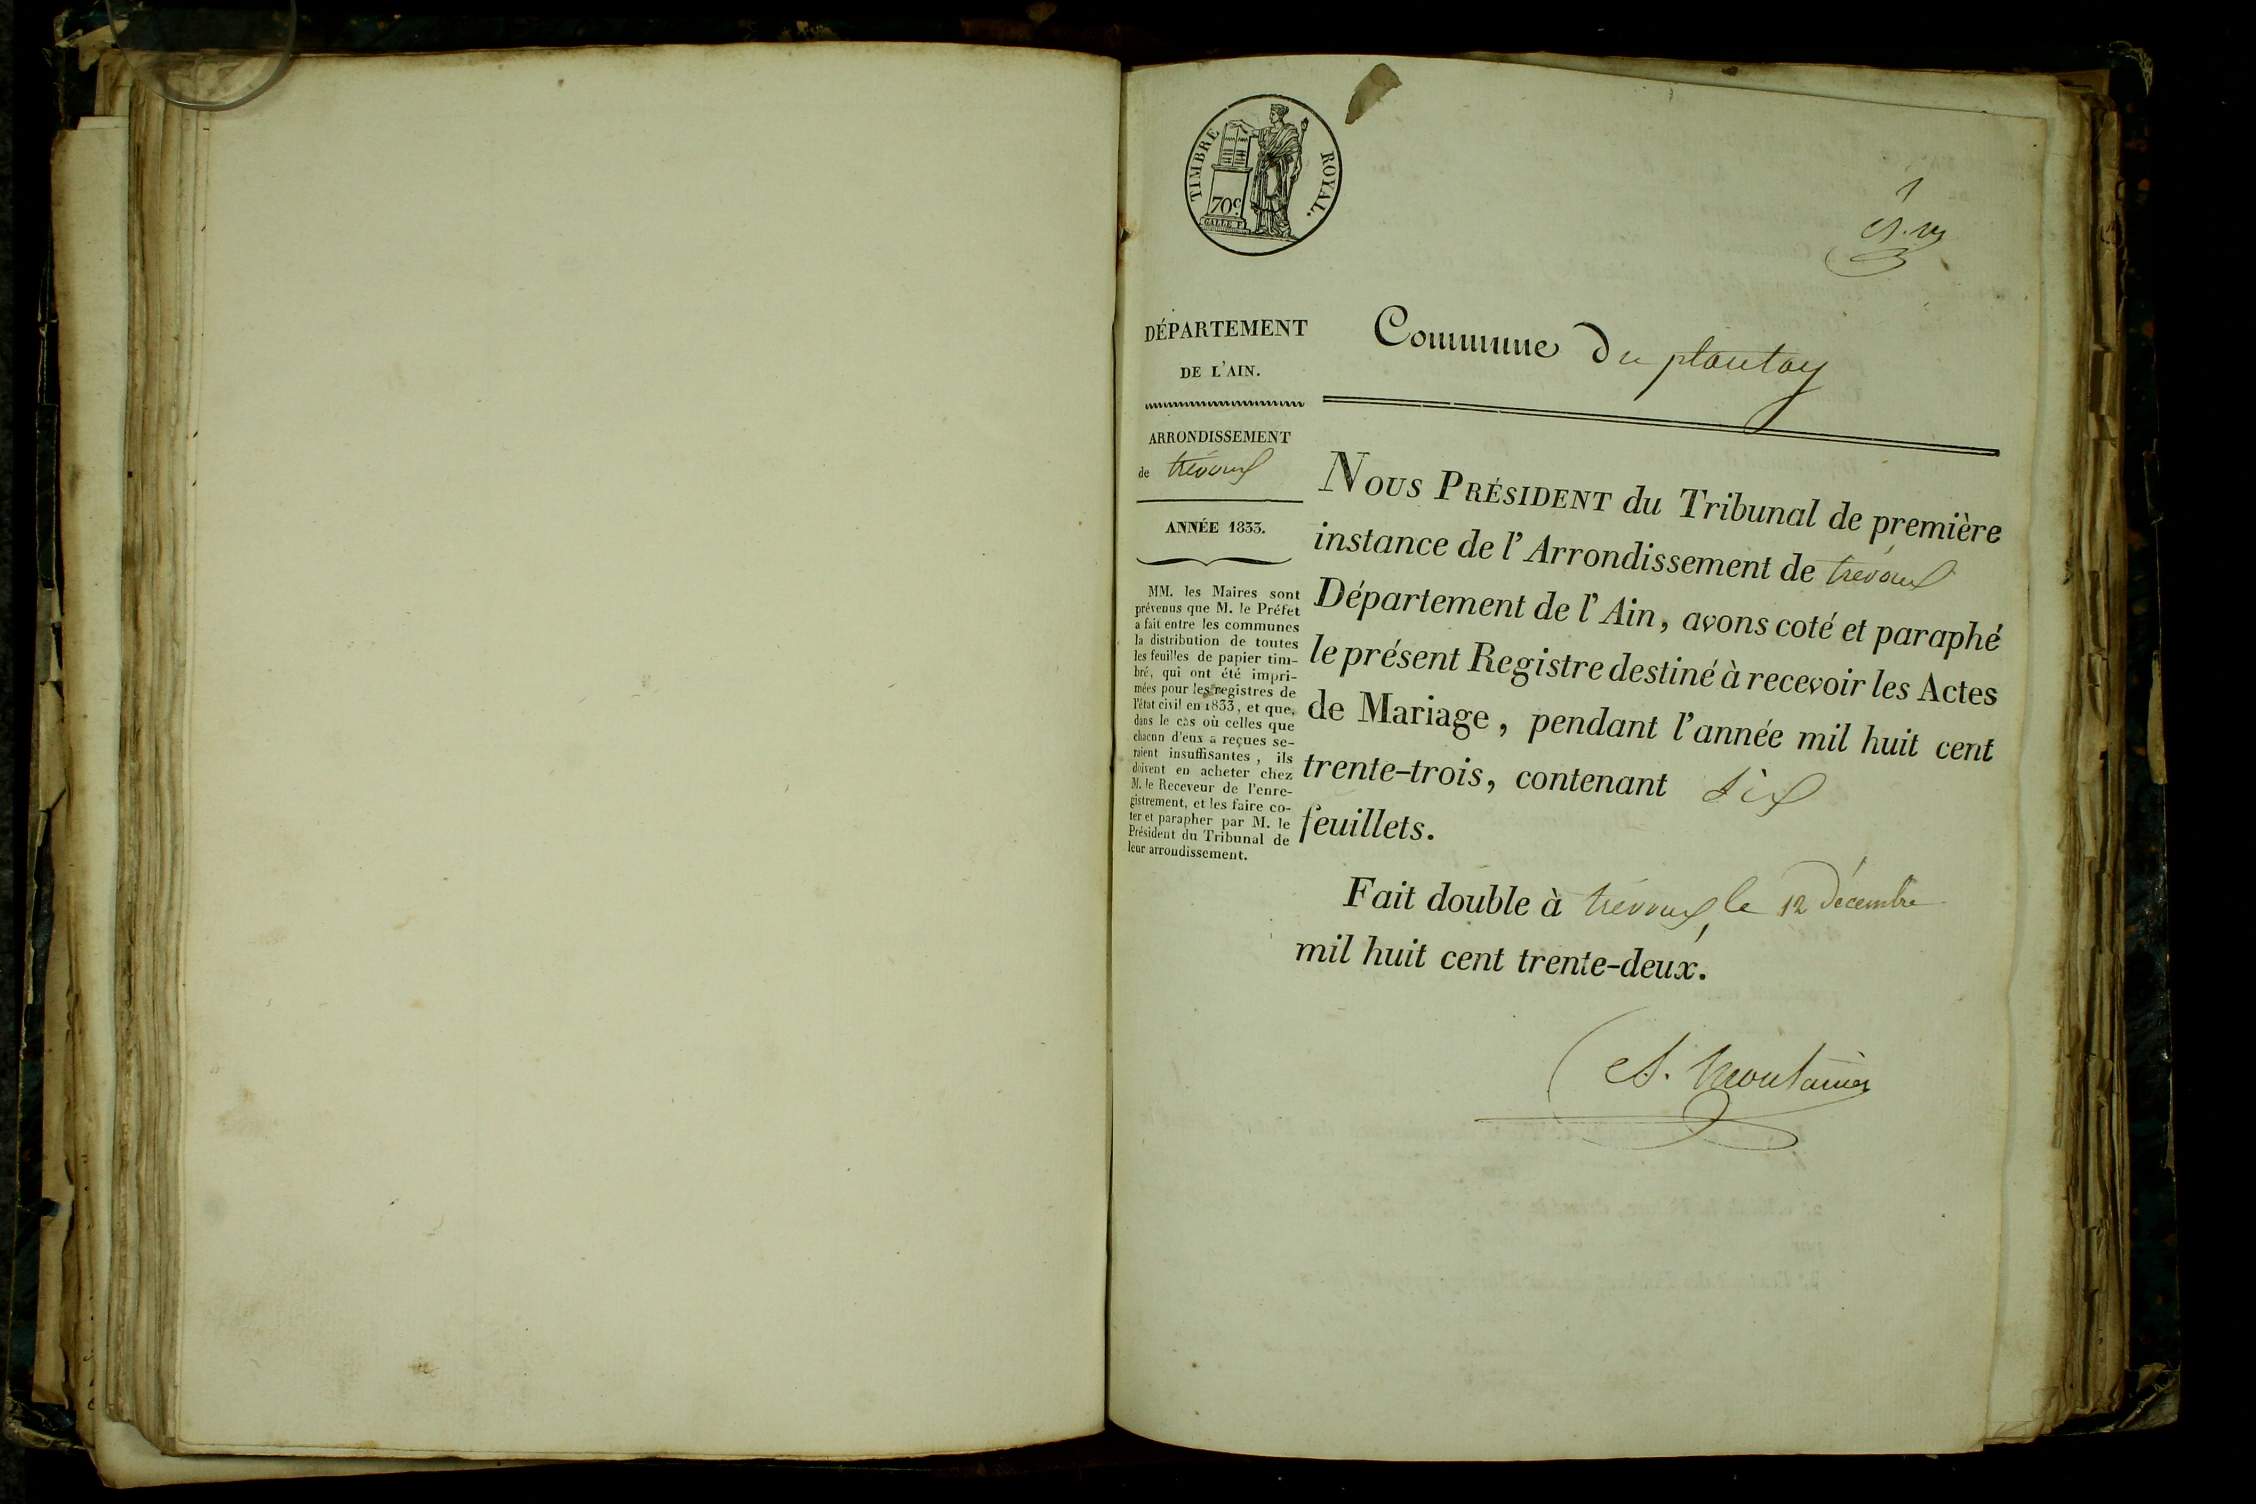 TIMBRE ROYAL.
70c.
GALLE F.
1
DÉPARTEMENT
DE L'AIN.
Commune Du plantay
ARRONDISSEMENT
de trévoux
ANNÉE 1833.
MM. les Maires sont
prévenus que M. le Préfet
a fait entre les communes
la distribution de toutes
les feuilles de papier tim-
bré, qui ont été impri-
mées pour les registres de
l'état civil en 1833, et que,
dans le cas où celles que
chacun d'eux a reçues se-
raient insuffisantes, ils
doivent en acheter chez
M. le Receveur de l'enre-
gistrement, et les faire co-
ter et parapher par M. le
Président du Tribunal de
leur arrondissement.
NOUS PRÉSIDENT du Tribunal de première
instance de l'Arrondissement de trévoux
Département de l'Ain, avons coté et paraphé
le présent Registre destiné à recevoir les Actes
de Mariage, pendant l'année mil huit cent
trente-trois, contenant six
feuillets.
Fait double à trévoux, le 12 décembre
mil huit cent trente-deux.